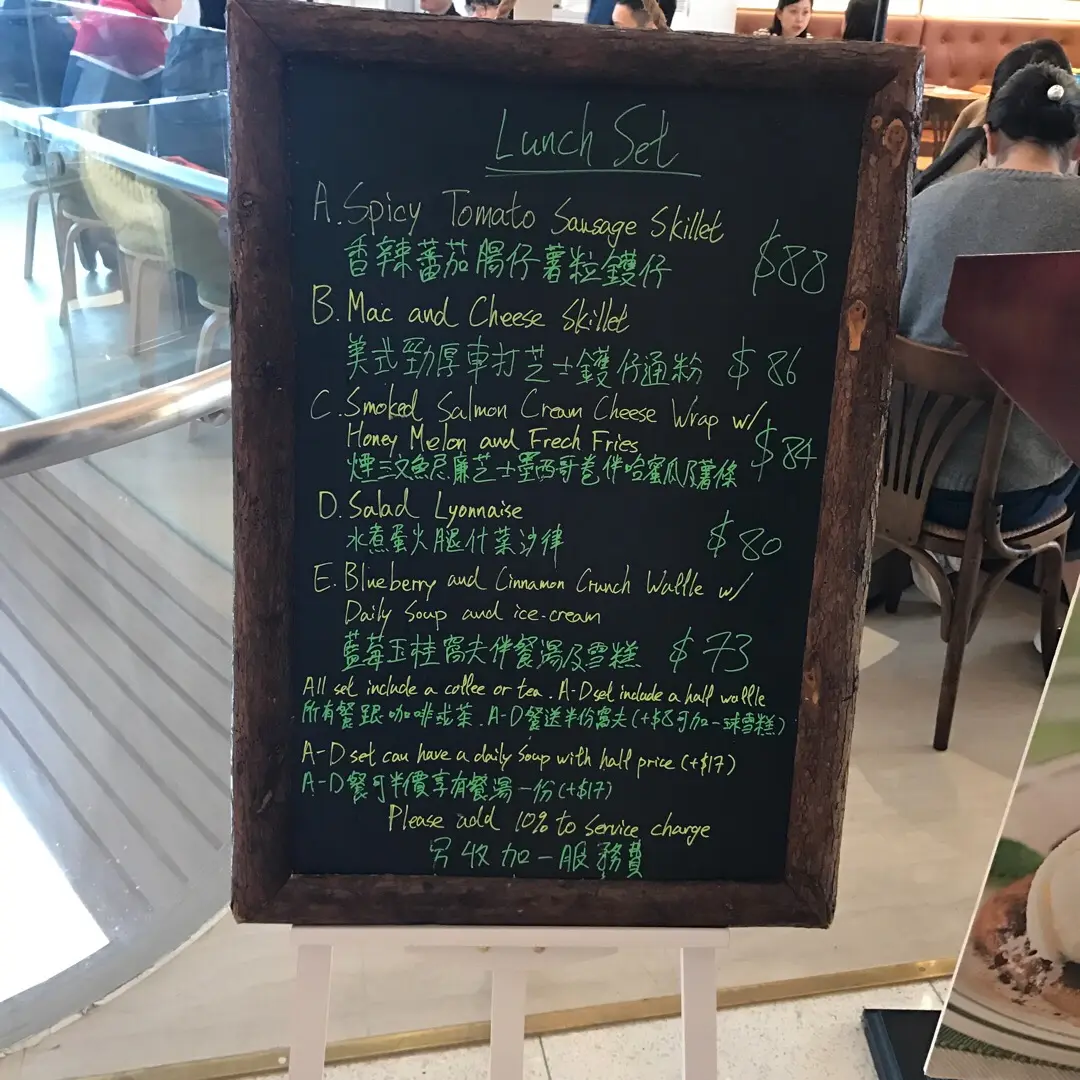 Lunch Set
A. Spicy Tomato Sausage Skillet
香辣蕃茄腸仔薯粒鑊仔 $88
B. Mac and Cheese Skillet
美式勁厚車打芝士鑊仔通粉 $86
C. Smoked Salmon Cream Cheese Wrap w/
Honey Melon and Frech Fries $84
煙三文魚忌廉芝士墨西哥卷伴哈蜜瓜及薯條
D. Salad Lyonnaise
水煮蛋火腿什菜沙律 $80
E. Blueberry and Cinnamon Crunch Waffle w/
Daily Soup and ice-cream
藍莓玉桂窩夫伴餐湯及雪糕 $73
All set include a coffee or tea. A-D set include a half waffle
所有餐跟咖啡或茶. A-D餐送半份窩夫(+$8可加一球雪糕)
A-D set can have a daily soup with half price (+$17)
A-D餐可半價享有餐湯一份(+$17)
Please add 10% to service charge
另收加一服務費